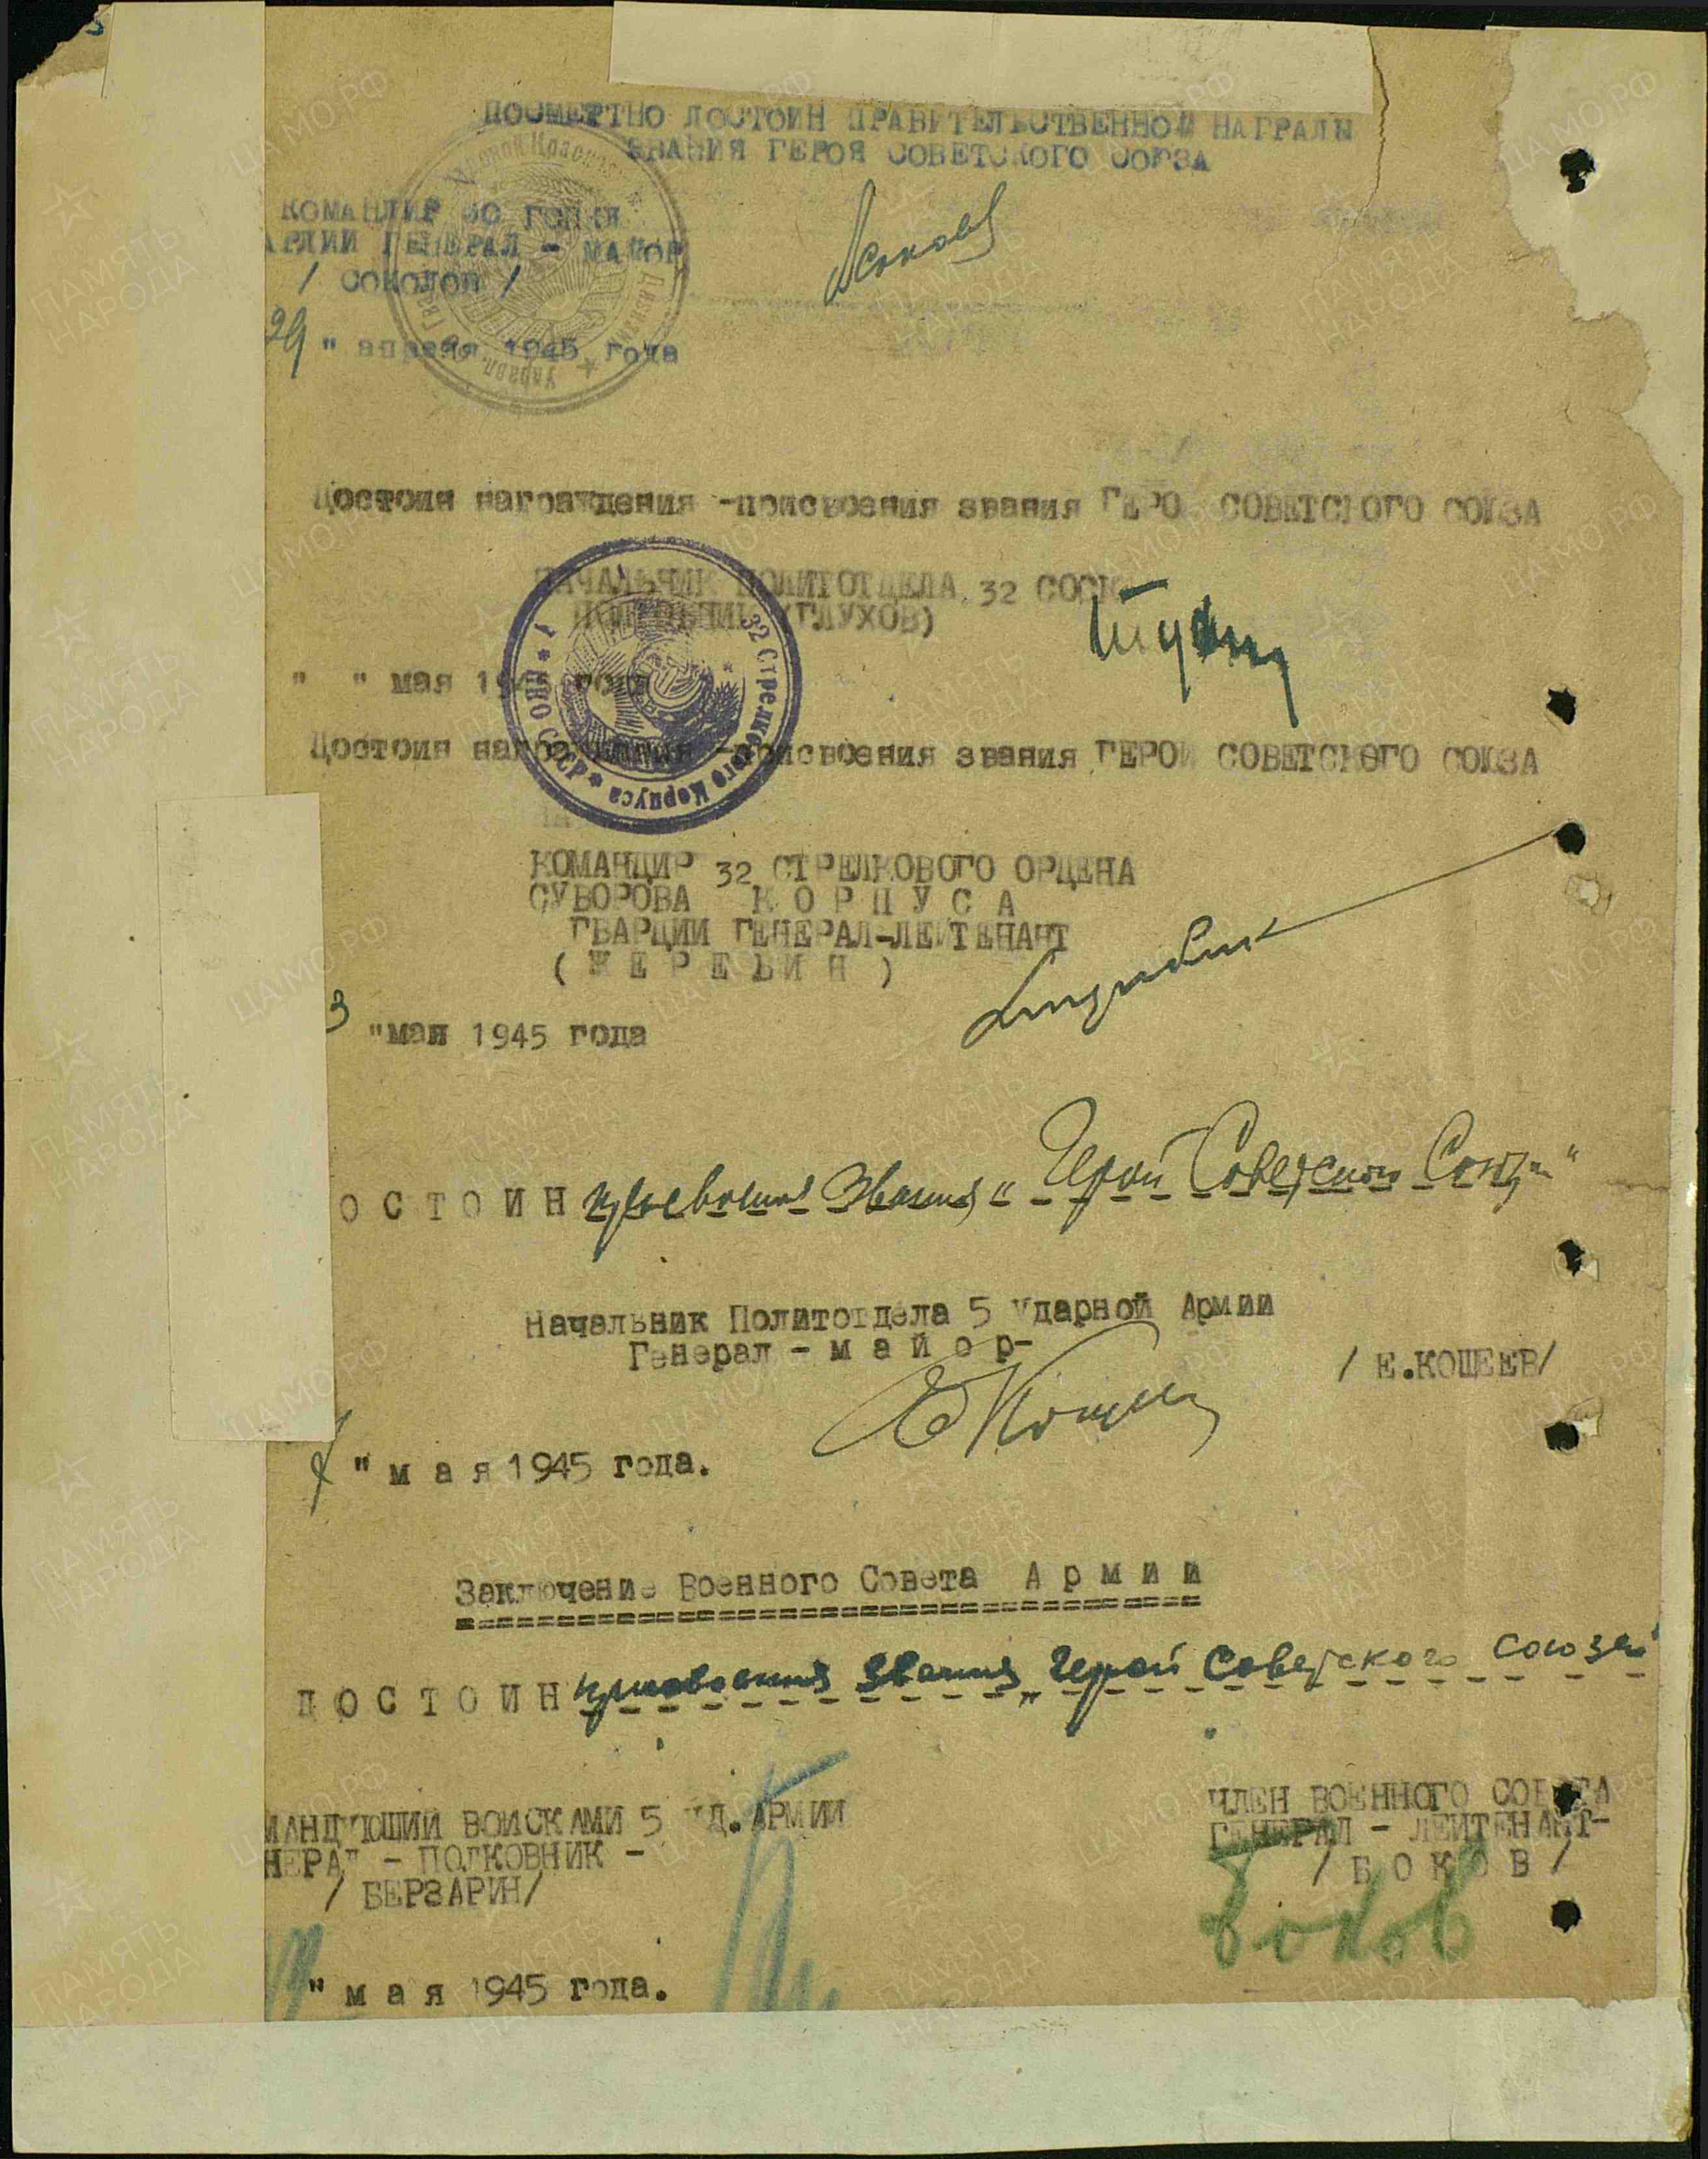 ПОСМЕРТНО ДОСТОИН ПРАВИТЕЛЬСТВЕННОЙ НАГРАДЫ
ЗВАНИЯ ГЕРОЯ СОВЕТСКОГО СОЮЗА
КОМАНДИР 60 ГСП КП
АРДИИ ГЕНЕРАЛ - МАЙОР
/ СОКОЛОВ /
29 " апреля 1945 года
Достоин награждения -присвоения звания ГЕРО СОВЕТСКОГО СОЮЗА
НАЧАЛЬНИК ПОЛИТОТДЕЛА 32 СОСК
ПОЛКОВНИК (ГЛУХОВ)
" " мая 1945 года
32 Стрелкового Корпуса
СССР
Достоин награждения -присвоения звания ГЕРОЙ СОВЕТСКОГО СОЮЗА
КОМАНДИР 32 СТРЕЛКОВОГО ОРДЕНА
СУВОРОВА К О Р П У С А
ГВАРДИИ ГЕНЕРАЛ-ЛЕЙТЕНАНТ
( Ж Е Р Е Б И Н )
3 "мая 1945 года
О С Т О И Н присвоения звания „Герой Советского Союза"
Начальник Политотдела 5 Ударной Армии
Генерал - м а й о р-
/ Е.КОЩЕЕВ/
7 " м а я 1945 года.
Заключение Военного Совета А р м и и
Д О С Т О И Н присвоения звания „Герой Советского Союза"
МАНДУЮЩИЙ ВОЙСКАМИ 5 УД. АРМИИ
НЕРАЛ - ПОЛКОВНИК -
/ БЕРЗАРИН/
ЧЛЕН ВОЕННОГО СОВЕТА
ГЕНЕРАЛ - ЛЕЙТЕНАНТ-
/ Б О К О В /
Боков
" м а я 1945 года.
ПАМЯТЬ НАРОДА
ЦА МО.РФ